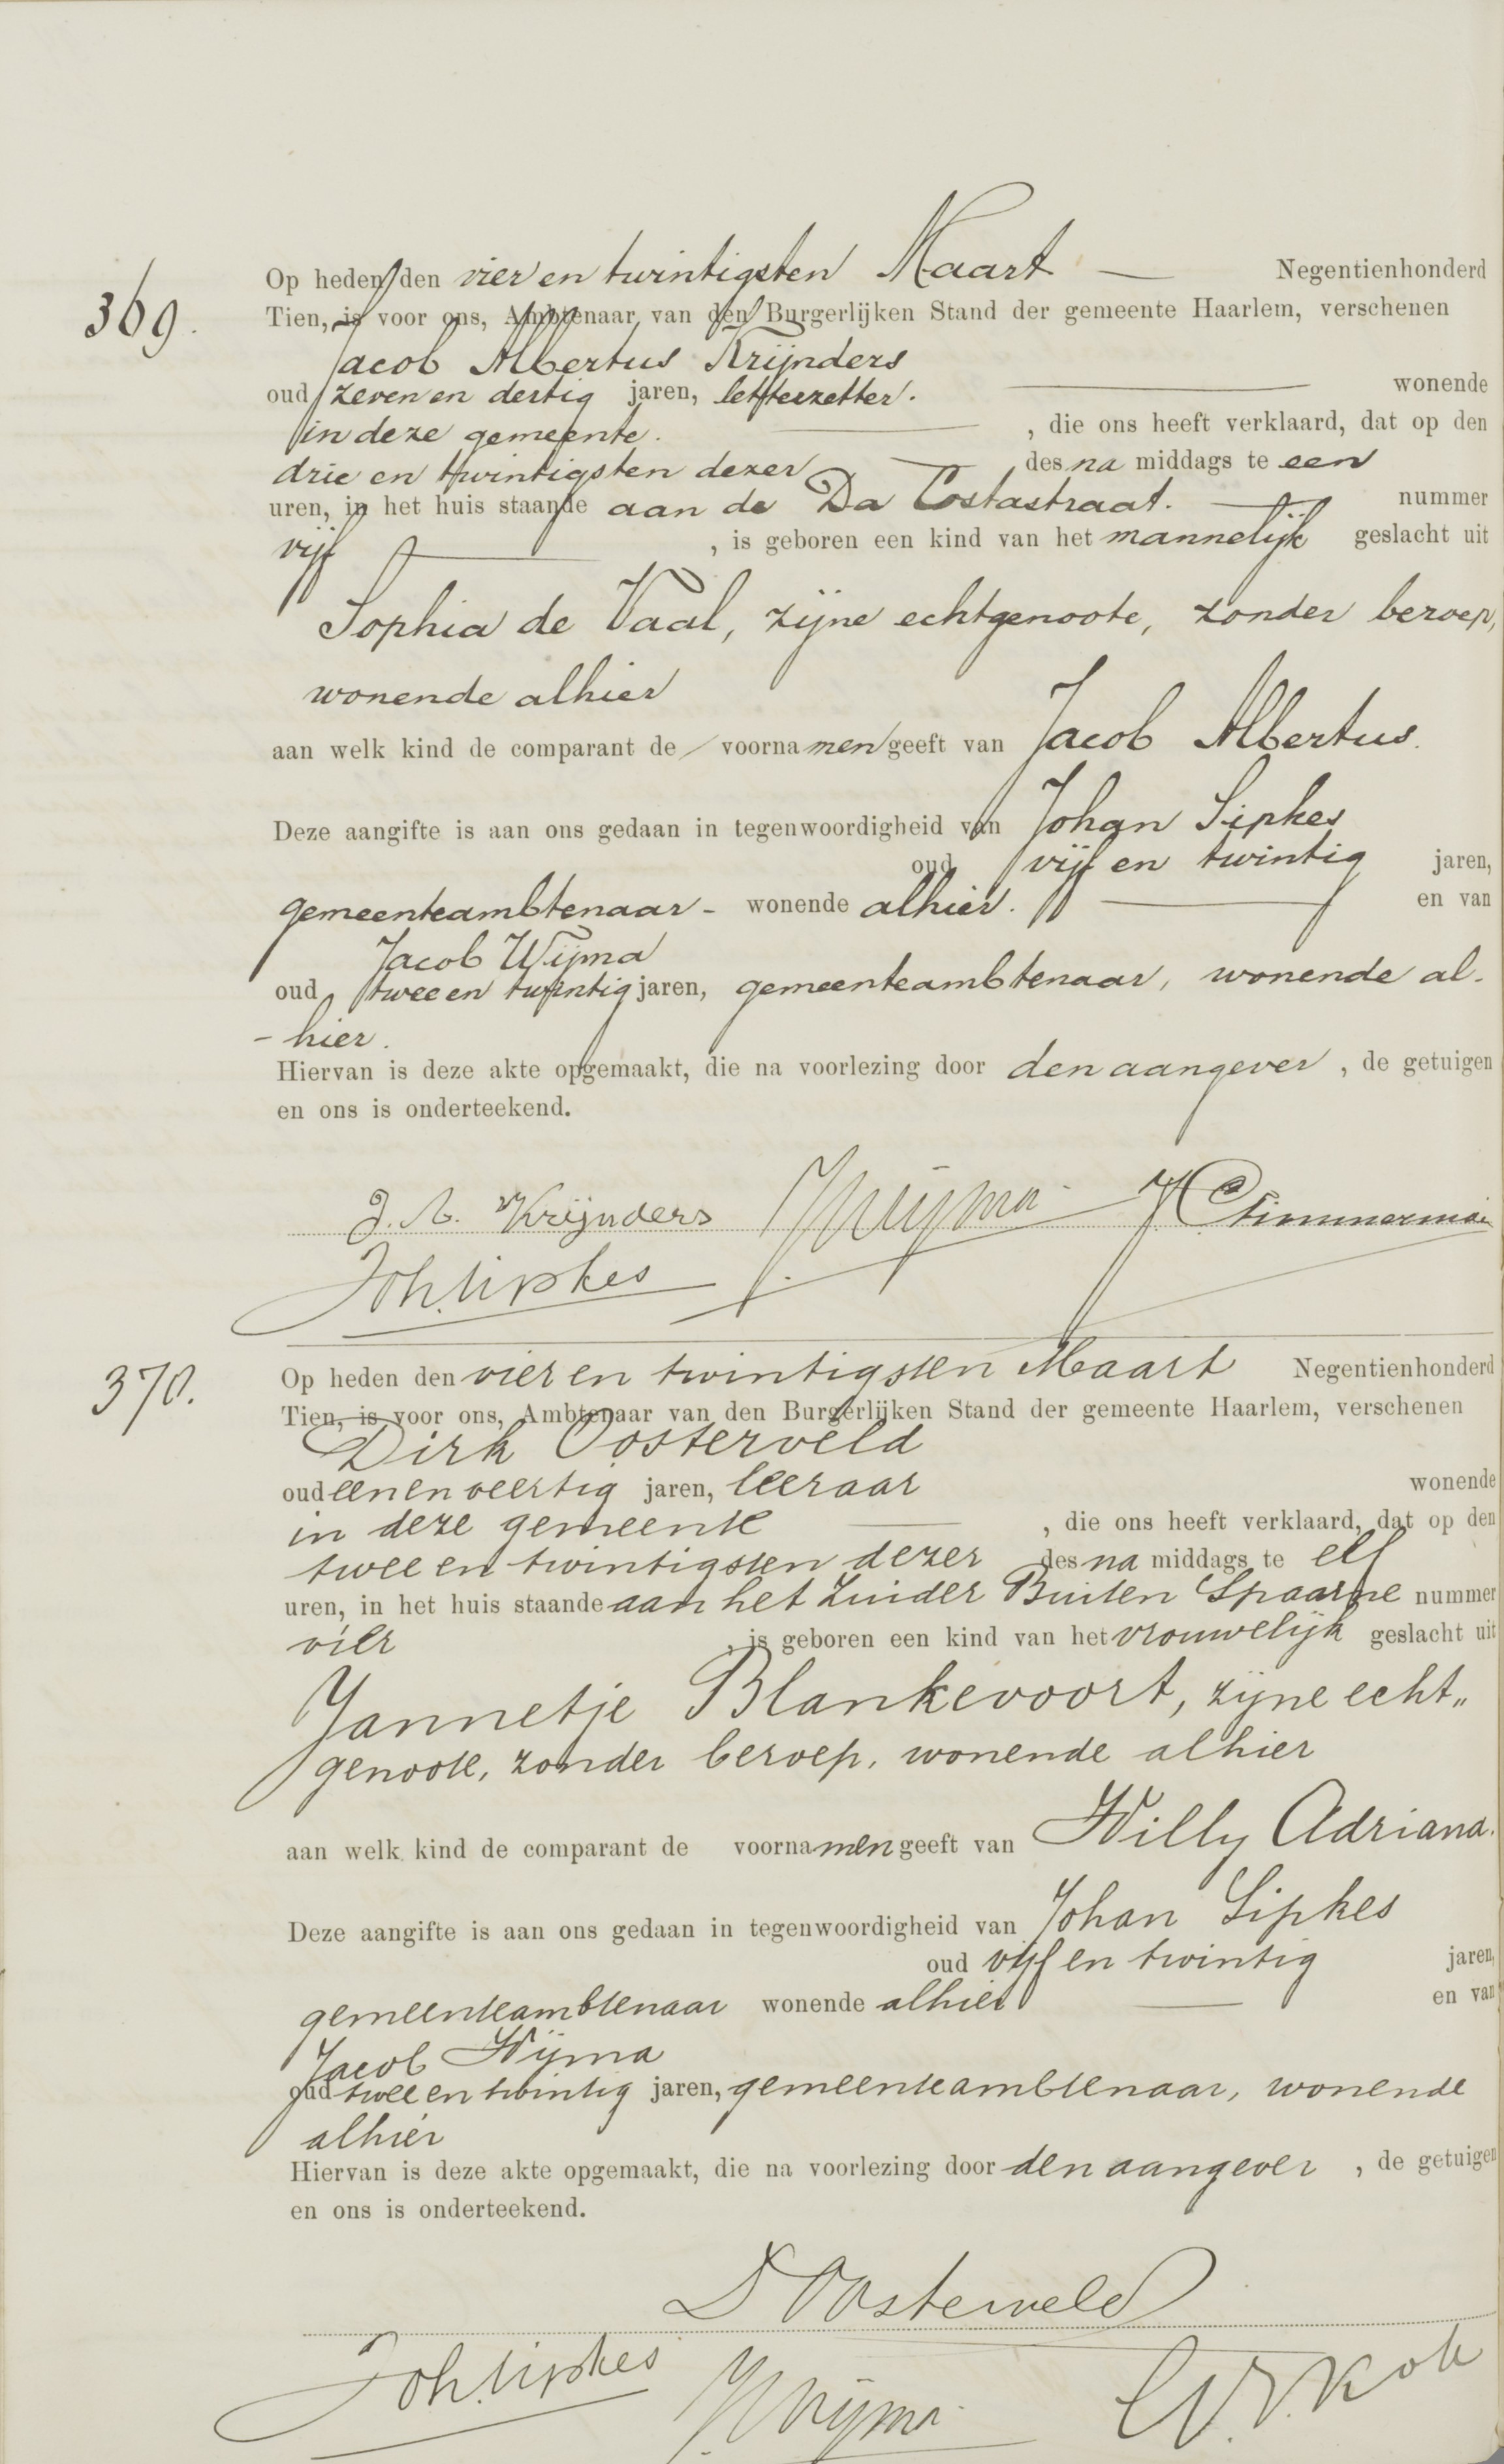 369.
Op heden den vier en twintigsten Maart — Negentienhonderd
Tien, is voor ons, Ambtenaar van den Burgerlijken Stand der gemeente Haarlem, verschenen
Jacob Albertus Krijnders
oud zeven en dertig jaren, letterzetter. — wonende
in deze gemeente. — , die ons heeft verklaard, dat op den
drie en twintigsten dezer — des na middags te een
uren, in het huis staande aan de Da Costastraat. — nummer
vijf — , is geboren een kind van het mannelijk geslacht uit
Sophia de Vaal, zijne echtgenoote, zonder beroep,
wonende alhier
aan welk kind de comparant de voornamen geeft van Jacob Albertus.
Deze aangifte is aan ons gedaan in tegenwoordigheid van Johan Sipkes
oud vijf en twintig jaren,
gemeenteambtenaar - wonende alhier. — en van
Jacob Wijma
oud twee en twintig jaren, gemeenteambtenaar, wonende al-
- hier.
Hiervan is deze akte opgemaakt, die na voorlezing door den aangever , de getuigen
en ons is onderteekend.
J. A. Krijnders JWijma Timmerman
Joh. Sipkes
370.
Op heden den vier en twintigsten Maart Negentienhonderd
Tien, is voor ons, Ambtenaar van den Burgerlijken Stand der gemeente Haarlem, verschenen
Dirk Oosterveld
oud een en veertig jaren, leeraar wonende
in deze gemeente — , die ons heeft verklaard, dat op den
twee en twintigsten dezer des na middags te elf
uren, in het huis staande aan het Zuider Buiten Spaarne nummer
vier , is geboren een kind van het vrouwelijk geslacht uit
Jannetje Blankevoort, zijne echt„
genoote, zonder beroep, wonende alhier
aan welk kind de comparant de voornamen geeft van Willy Adriana.
Deze aangifte is aan ons gedaan in tegenwoordigheid van Johan Sipkes
oud vijf en twintig jaren,
gemeenteambtenaar wonende alhier — en van
Jacob Wijma
oud twee en twintig jaren, gemeenteambtenaar, wonende
alhier
Hiervan is deze akte opgemaakt, die na voorlezing door den aangever , de getuigen
en ons is onderteekend.
D Oosterveld
Joh. Sipkes JWijma